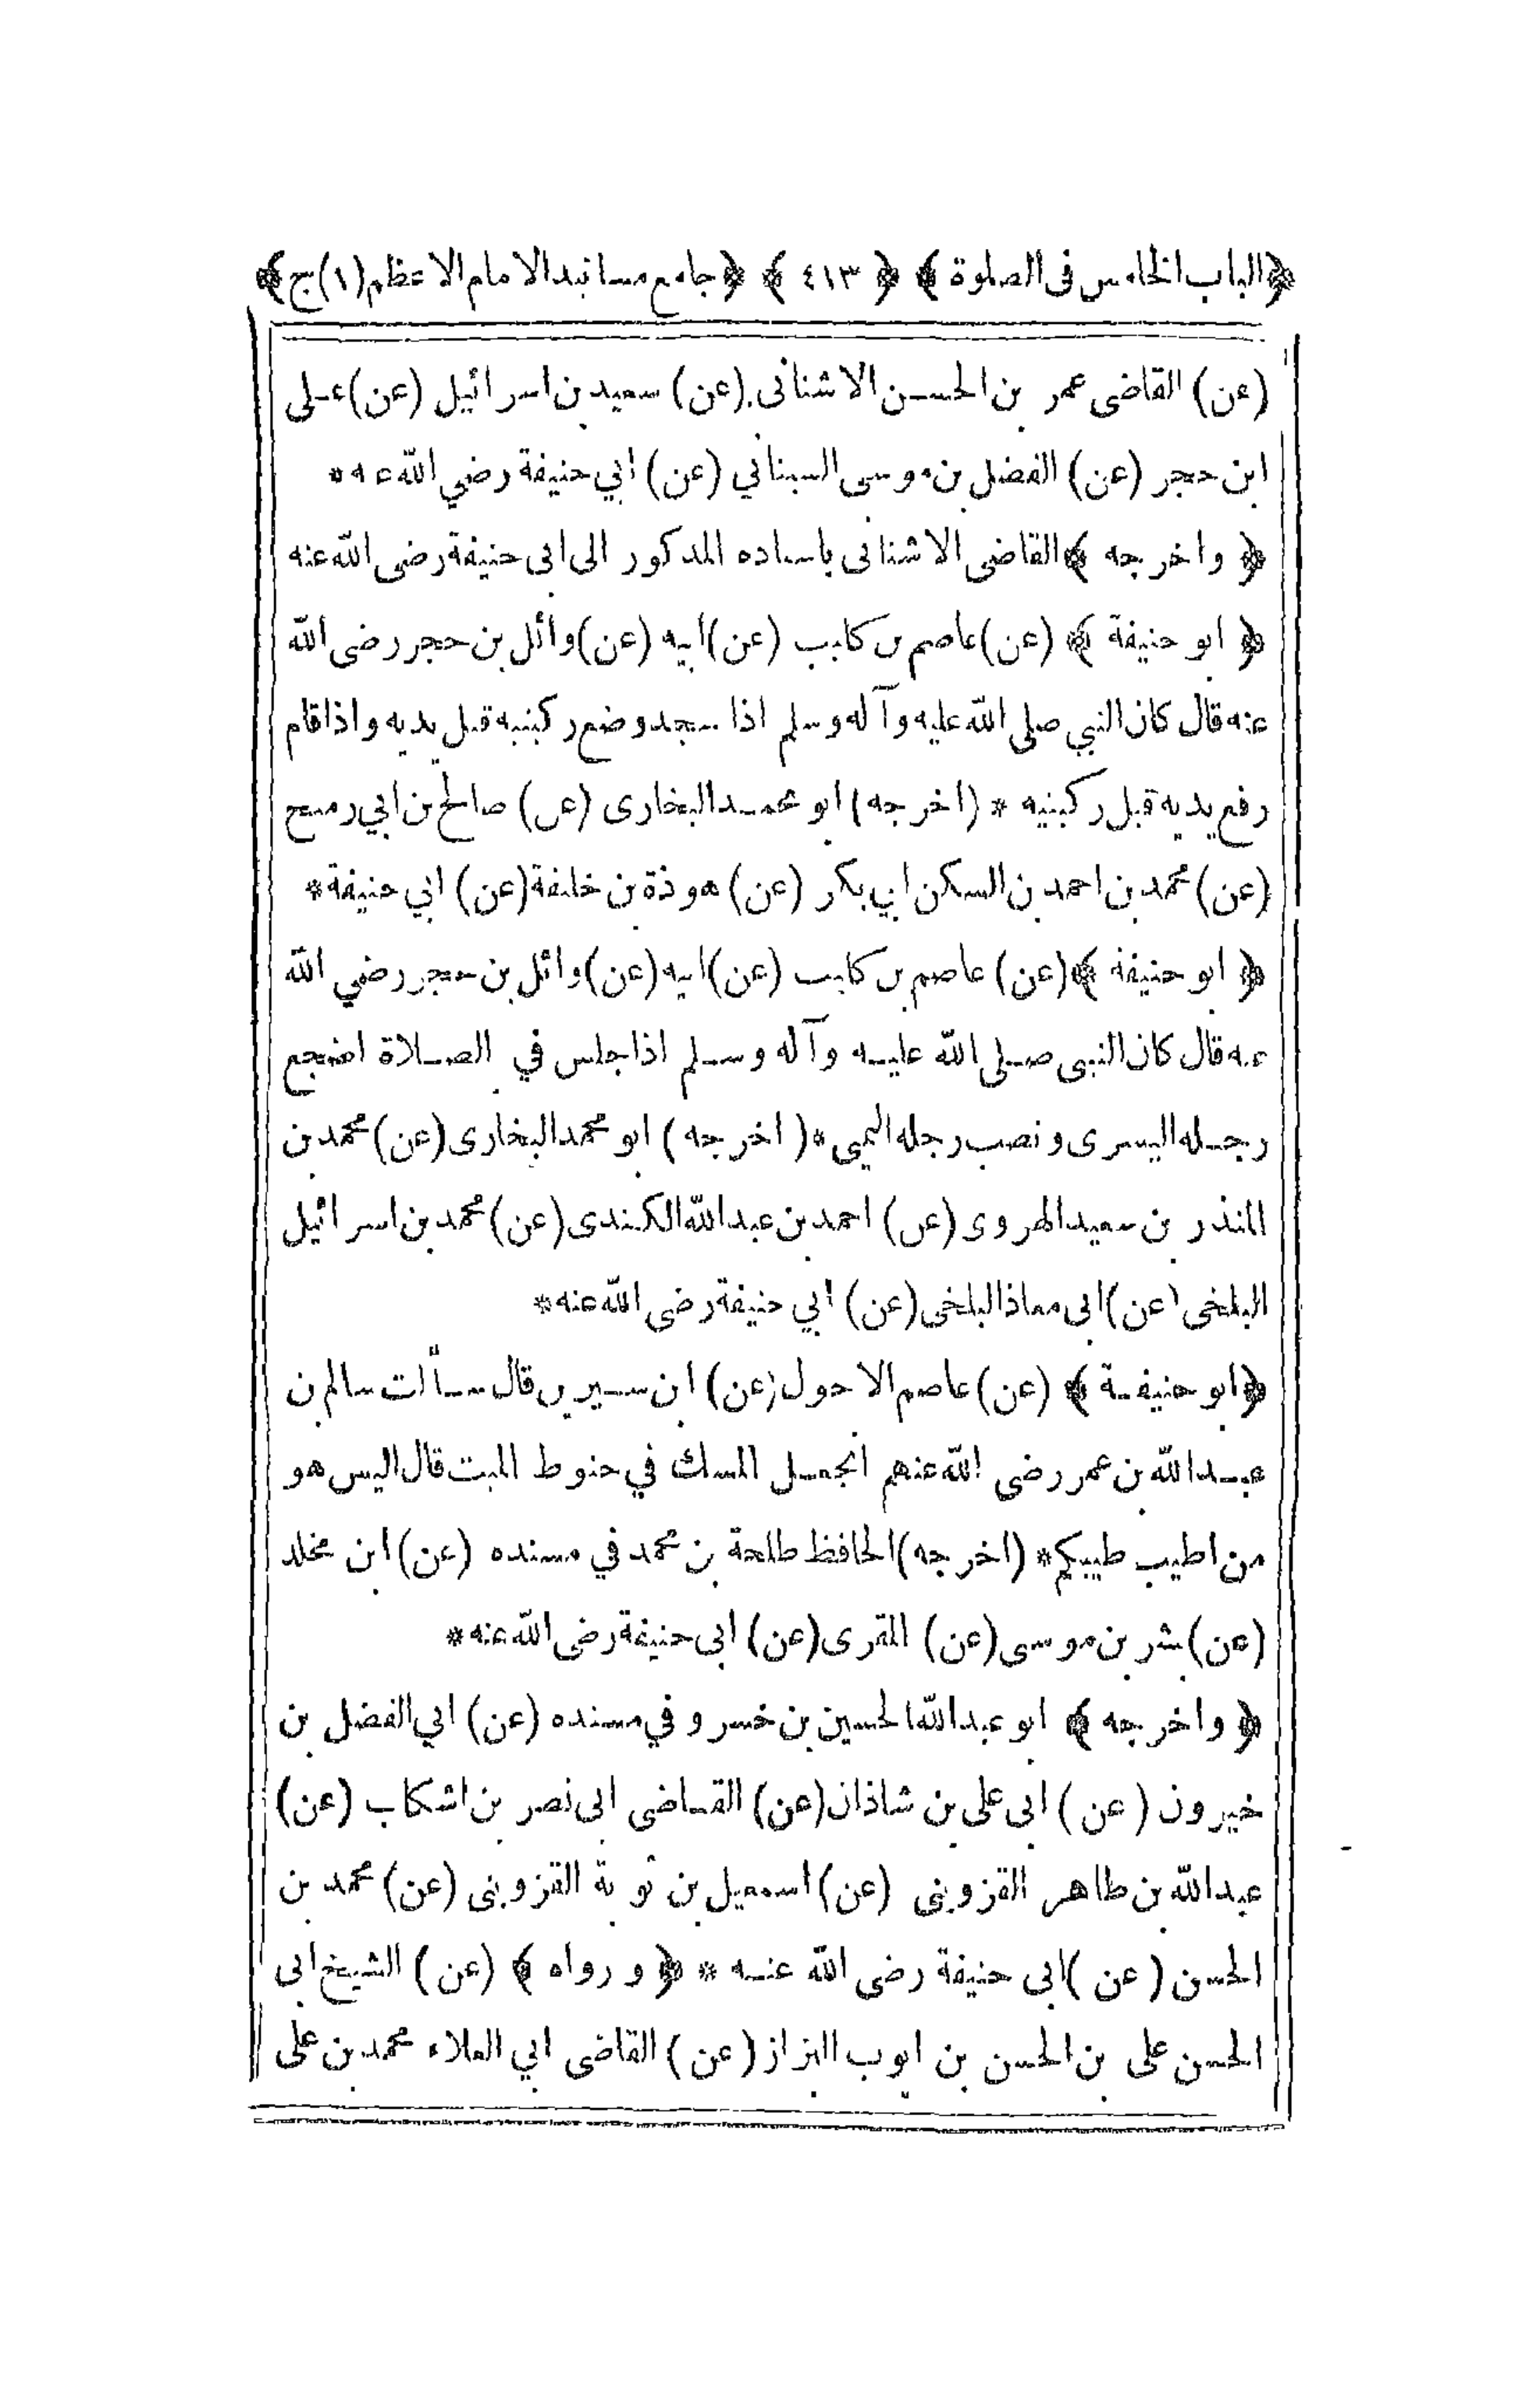 ﴿الباب الخامس فى الصلوة﴾ ﴿ ٤١٣ ﴾ ﴿جامع مسانيد الامام الاعظم(١)ج﴾
(عن) القاضى عمر بن الحسن الاشنانى (عن) سعيد بن اسرائيل (عن) على
ابن حجر (عن) الفضل بن موسى السيناني (عن) ابي حنيفة رضي الله عنه *
﴿ واخرجه ﴾ القاضى الاشنانى باسناده المذكور الى ابى حنيفة رضى الله عنه
﴿ ابو حنيفة ﴾ (عن) عاصم بن كليب (عن) ابيه (عن) وائل بن حجر رضى الله
عنه قال كان النبي صلى الله عليه وآله وسلم اذا سجد وضع ركبتيه قبل يديه واذا قام
رفع يديه قبل ركبتيه * (اخرجه) ابو محمد البخارى (عن) صالح بن ابي رميح
(عن) محمد بن احمد بن السكن ابي بكر (عن) هوذة بن خليفة (عن) ابي حنيفة *
﴿ ابو حنيفة ﴾ (عن) عاصم بن كليب (عن) ابيه (عن) وائل بن حجر رضي الله
عنه قال كان النبى صلى الله عليه وآله وسلم اذا جلس في الصلاة اضجع
رجله اليسرى ونصب رجله اليمنى * ( اخرجه ) ابو محمد البخارى (عن) محمد بن
المنذر بن سعيد الهروى (عن) احمد بن عبد الله الكندى (عن) محمد بن اسرائيل
البلخى (عن) ابى معاذ البلخى (عن) ابي حنيفة رضى الله عنه *
﴿ابو حنيفة ﴾ (عن) عاصم الاحول (عن) ابن سيرين قال سألت سالم بن
عبد الله بن عمر رضى الله عنهم اتجعل المسك في حنوط الميت قال اليس هو
من اطيب طيبكم * (اخرجه) الحافظ طلحة بن محمد في مسنده (عن) ابن مخلد
(عن) بشر بن موسى (عن) المقرى (عن) ابى حنيفة رضى الله عنه *
﴿ واخرجه ﴾ ابو عبد الله الحسين بن خسرو في مسنده (عن) ابي الفضل بن
خيرون ( عن ) ابى على بن شاذان (عن) القاضى ابى نصر بن اشكاب (عن)
عبد الله بن طاهر القزوينى (عن) اسمعيل بن توبة القزوينى (عن) محمد بن
الحسن ( عن ) ابى حنيفة رضى الله عنه * ﴿ ورواه ﴾ (عن) الشيخ ابى
الحسن على بن الحسن بن ايوب البزاز ( عن ) القاضى ابي العلاء محمد بن على